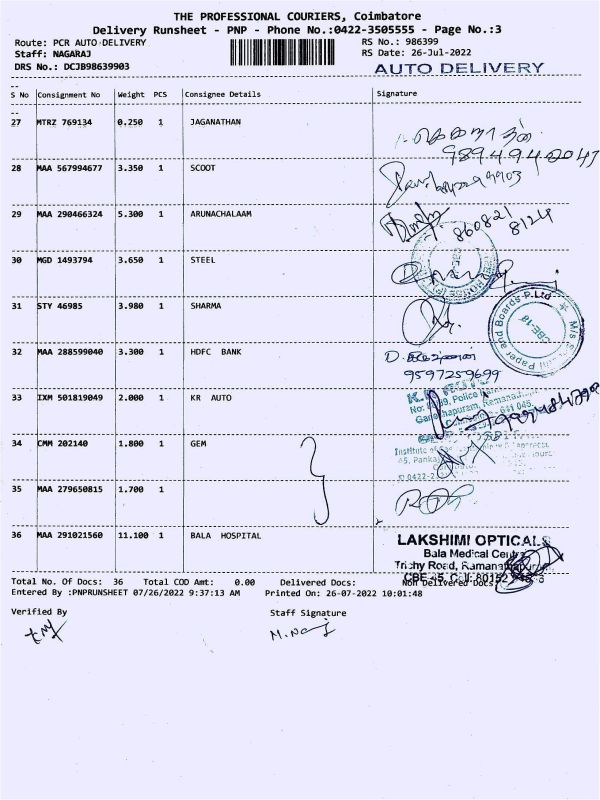 THE PROFESSIONAL COURIERS, Coimbatore
Delivery Runsheet - PNP - Phone No.:0422-3505555 - Page No.:3
Route: PCR AUTO DELIVERY
RS No.: 986399
Staff: NAGARAJ
RS Date: 26-Jul-2022
DRS No.: DCJB98639903
AUTO DELIVERY
S No Consignment No Weight PCS Consignee Details Signature
27 MTRZ 769134 0.250 1 JAGANATHAN
28 MAA 567994677 3.350 1 SCOOT
29 MAA 290466324 5.300 1 ARUNACHALAAM
860821
8124
30 MGD 1493794 3.650 1 STEEL
31 STY 46985 3.980 1 SHARMA
Paper and Boards P.Ltd
CBE-18
32 MAA 288599040 3.300 1 HDFC BANK
9597259699
33 IXM 501819049 2.000 1 KR AUTO
34 CMM 202140 1.800 1 GEM
35 MAA 279650815 1.700 1
36 MAA 291021560 11.100 1 BALA HOSPITAL
LAKSHIMI OPTICALS
Bala Medical
Trichy Road,
Total No. Of Docs: 36 Total COD Amt: 0.00 Delivered Docs: Non Delivered Docs:
Entered By :PNPRUNSHEET 07/26/2022 9:37:13 AM Printed On: 26-07-2022 10:01:48
Verified By
Staff Signature